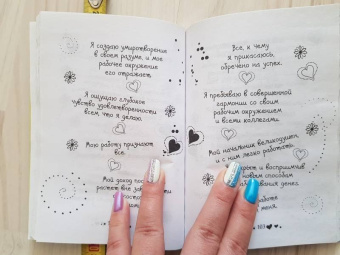 Я создаю умиротворение
в своём разуме, и моё
рабочее окружение
его отражает.
Я ощущаю глубокое
чувство удовлетворённости
всем, что я делаю.
Мою работу признают
все.
Мой доход
растёт вне
Всё, к чему
я прикасаюсь,
обречено на успех.
Я пребываю в совершенной
гармонии со своим
рабочим окружением
и всеми коллегами.
Мой начальник великодушен,
и с ним легко работать.
и восприимчив
новым способам
денег.
работе
меня.
103